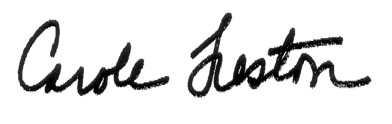 Carole Freston